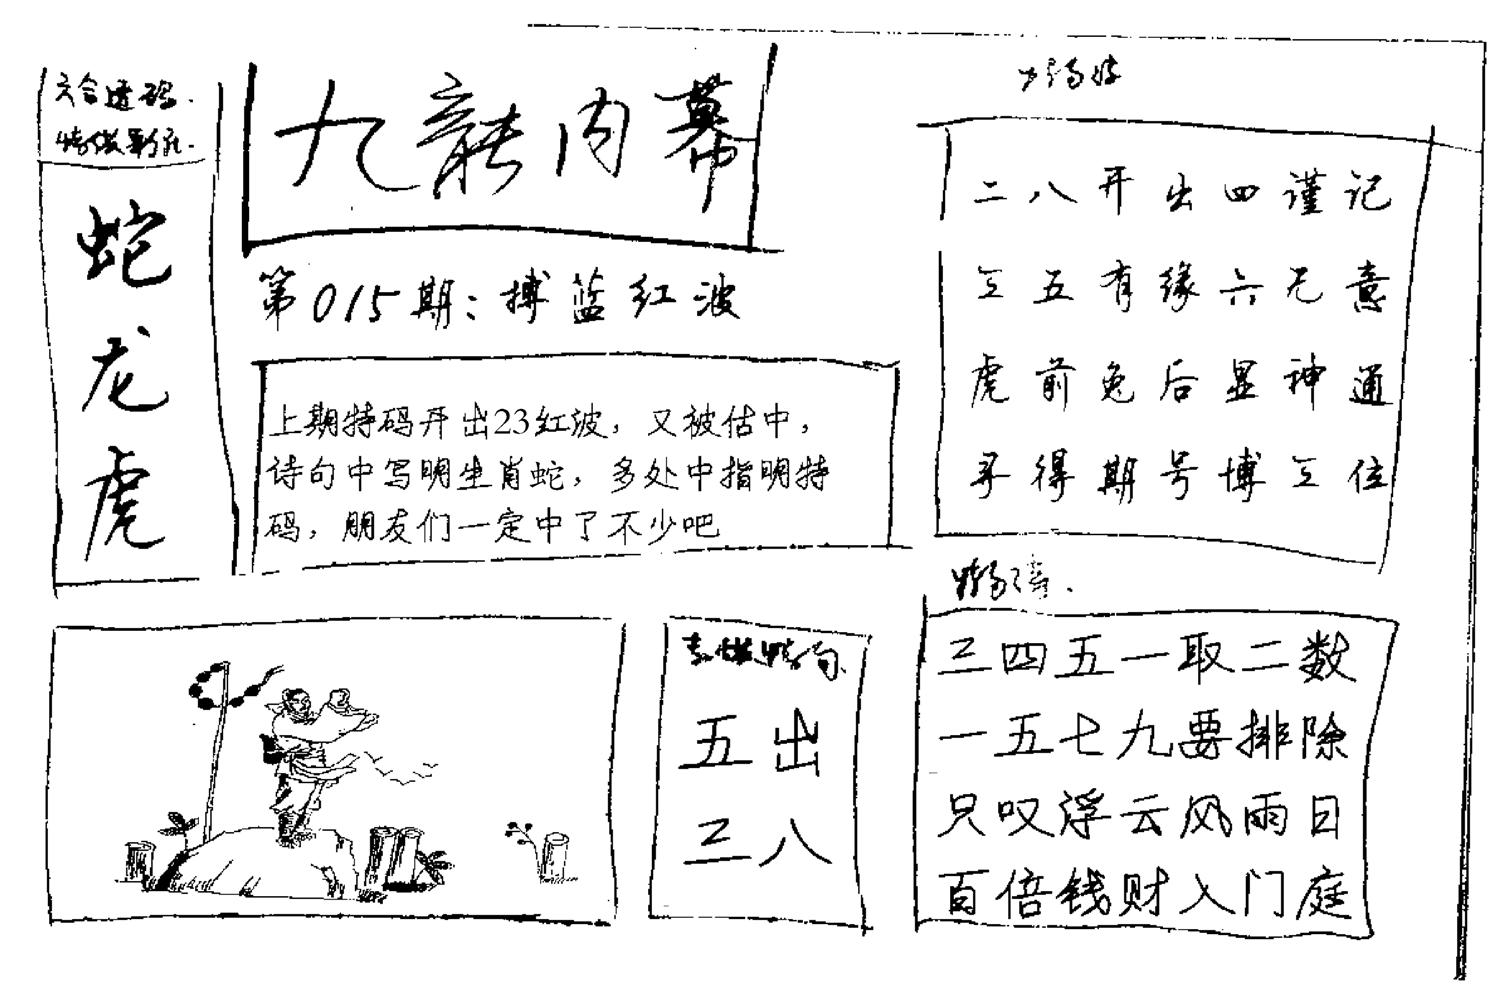 六合透码.
蛇
龙
虎
九龍内幕
第015期：搏蓝红波
上期特码开出23红波，又被估中，
诗句中写明生肖蛇，多处中指明特
码，朋友们一定中了不少吧
二八开出四谨记
三五有缘六无意
虎前兔后显神通
寻得期号博三位
五出
三八
三四五一取二数
一五七九要排除
只叹浮云风雨日
百倍钱财入门庭